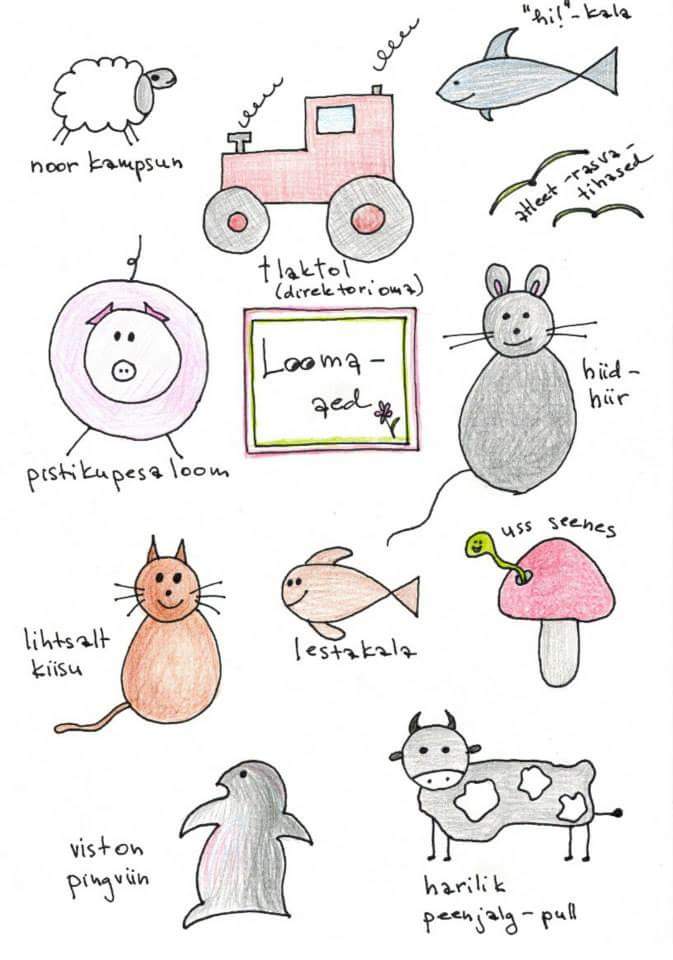 "hi!"-kala
noor kampsun
atleet-rasva-
tihased
tlaktol
(direktori oma)
Looma-
aed
hiid-
hiir
pistikupesa loom
uss seenes
lihtsalt
kiisu
lestakala
vist on
pingviin
harilik
peenjalg-pull